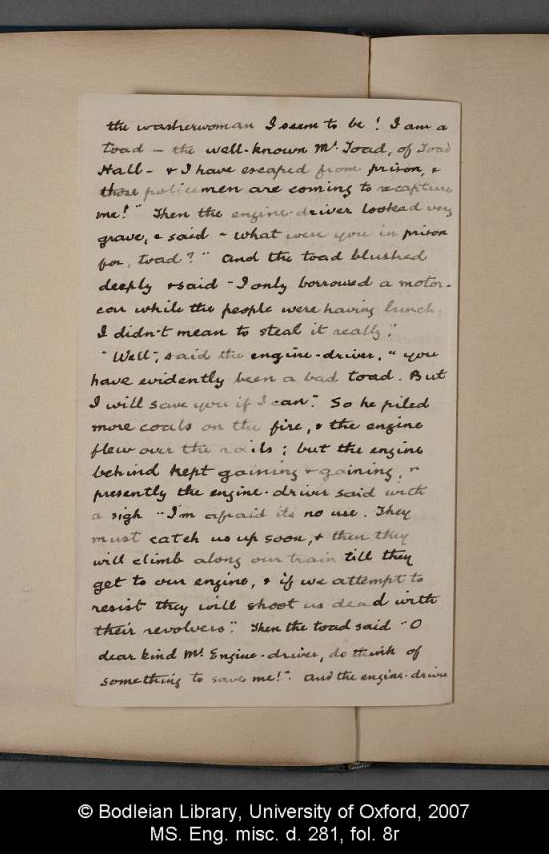 the washerwoman I seem to be! I am a
toad – the well-known Mr. Toad, of Toad
Hall – & I have escaped from prison, &
those policemen are coming to recapture
me!" Then the engine-driver looked very
grave, & said – what were you in prison
for, toad?" And the toad blushed
deeply & said "I only borrowed a motor-
car while the people were having lunch.
I didn't mean to steal it really".
"Well", said the engine-driver, "you
have evidently been a bad toad. But
I will save you if I can". So he piled
more coals on the fire, & the engine
flew over the rails; but the engine
behind kept gaining & gaining, &
presently the engine-driver said with
a sigh "I'm afraid its no use. They
must catch us up soon, & then they
will climb along our train till they
get to our engine, & if we attempt to
resist they will shoot us dead with
their revolvers". Then the toad said "O
dear kind Mr. Engine-driver, do think of
something to save me!". And the engine-driver
© Bodleian Library, University of Oxford, 2007
MS. Eng. misc. d. 281, fol. 8r